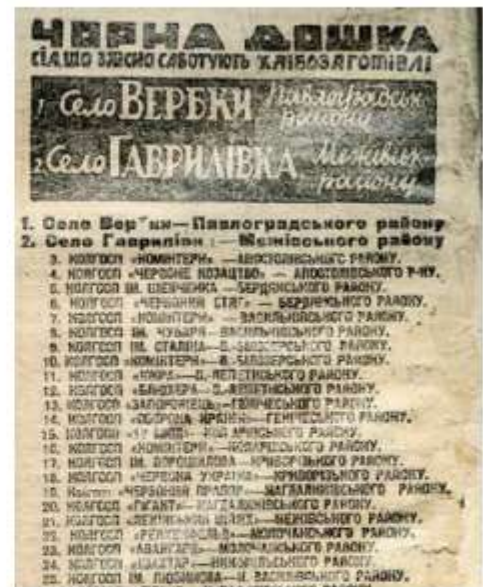 ЧОРНА ДОШКА
СІЛ, ЩО ЗЛІСНО САБОТУЮТЬ ХЛІБОЗАГОТІВЛІ
1 Село ВЕРБКИ Павлоградськ. району
2 Село ГАВРИЛІВКА Межівськ. району
1. Село Вербки—Павлоградського району
2. Село Гаврилівка—Межівського району
3. КОЛГОСП «КОМІНТЕРН»—АПОСТОЛІВСЬКОГО РАЙОНУ.
4. КОЛГОСП «ЧЕРВОНЕ КОЗАЦТВО» — АПОСТОЛІВСЬКОГО Р-НУ.
5. КОЛГОСП ІМ. ШЕВЧЕНКА — БЕРДЯНСЬКОГО РАЙОНУ.
6. КОЛГОСП «ЧЕРВОНИЙ СТЯГ» — БЕРДЯНСЬКОГО РАЙОНУ.
7. КОЛГОСП «КОМІНТЕРН» — ВАСИЛЬКІВСЬКОГО РАЙОНУ.
8. КОЛГОСП ІМ. ЧУБАРЯ—ВАСИЛЬКІВСЬКОГО РАЙОНУ.
9. КОЛГОСП ІМ. СТАЛІНА—В. БІЛОЗЕРСЬКОГО РАЙОНУ.
10. КОЛГОСП «КОМІНТЕРН»—В. БІЛОЗЕРСЬКОГО РАЙОНУ.
11. КОЛГОСП «ІСКРА»—В. ЛЕПЕТИСЬКОГО РАЙОНУ.
12. КОЛГОСП «БЛЮХЕРА»—В. ЛЕПЕТИСЬКОГО РАЙОНУ.
13. КОЛГОСП «ЗАПОРОЖЕЦЬ»—ГЕНІЧЕСЬКОГО РАЙОНУ.
14. КОЛГОСП «ОБОРОНА КРАЇНИ»—ГЕНІЧЕСЬКОГО РАЙОНУ.
15. КОЛГОСП РАЙОНУ.
16. КОЛГОСП «КОМІНТЕРН» РАЙОНУ.
17. КОЛГОСП ІМ. ВОРОШИЛОВА—КРИВОРІЗЬКОГО РАЙОНУ.
18. КОЛГОСП «ЧЕРВОНА УКРАЇНА»—КРИВОРІЗЬКОГО РАЙОНУ.
19. Колгосп «ЧЕРВОНИЙ ПРАПОР»—МАГДАЛИНІВСЬКОГО РАЙОНУ.
20. КОЛГОСП «ГІГАНТ»—МАГДАЛИНІВСЬКОГО РАЙОНУ.
21. КОЛГОСП «ЛЕНІНСЬКИЙ ШЛЯХ»—МЕЖІВСЬКОГО РАЙОНУ.
22. КОЛГОСП МОЛОЧАНСЬКОГО РАЙОНУ.
23. КОЛГОСП «АВАНГАРД»—МОЛОЧАНСЬКОГО РАЙОНУ.
24. КОЛГОСП «ШАХТАР»—НИКОПІЛЬСЬКОГО РАЙОНУ.
25. КОЛГОСП ІМ. Н. ВАСИЛІВСЬКОГО РАЙОНУ.